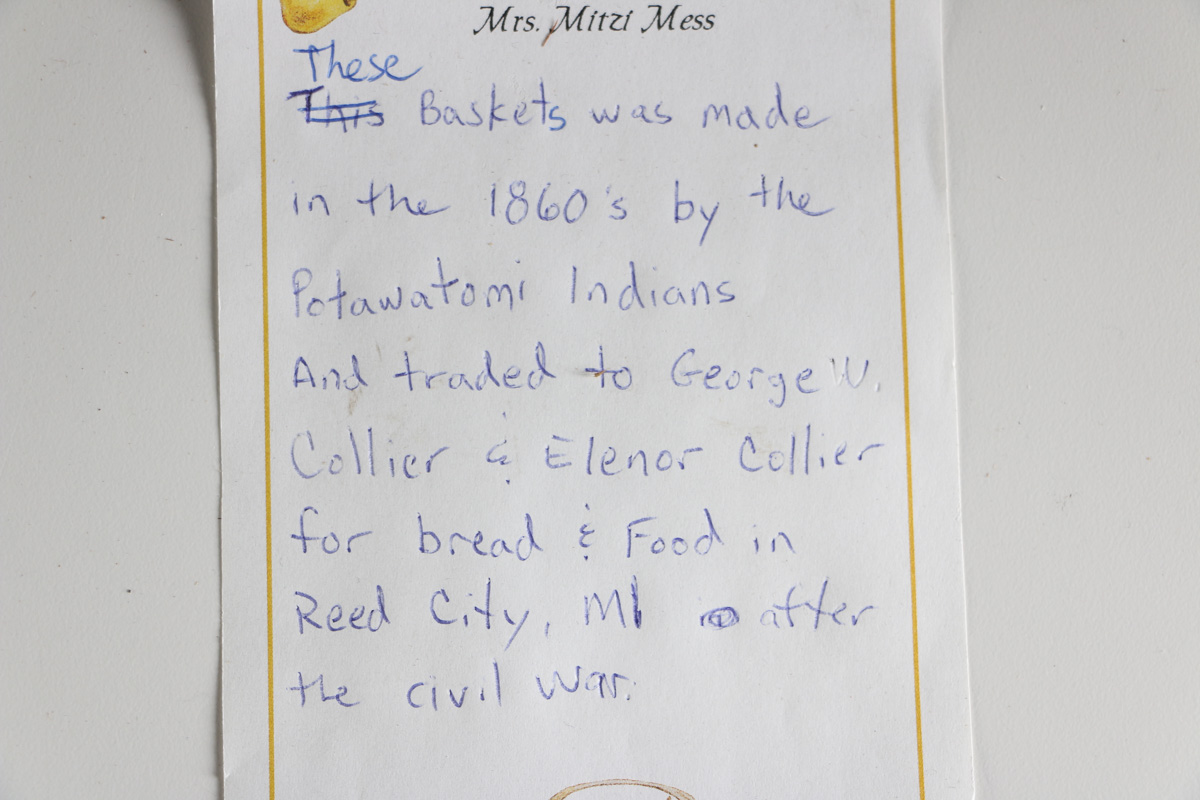 Mrs. Mitzi Mess
These
This Baskets was made
in the 1860's by the
Potawatomi Indians
And traded to George W.
Collier & Elenor Collier
for bread & Food in
Reed City, MI after
the civil war.